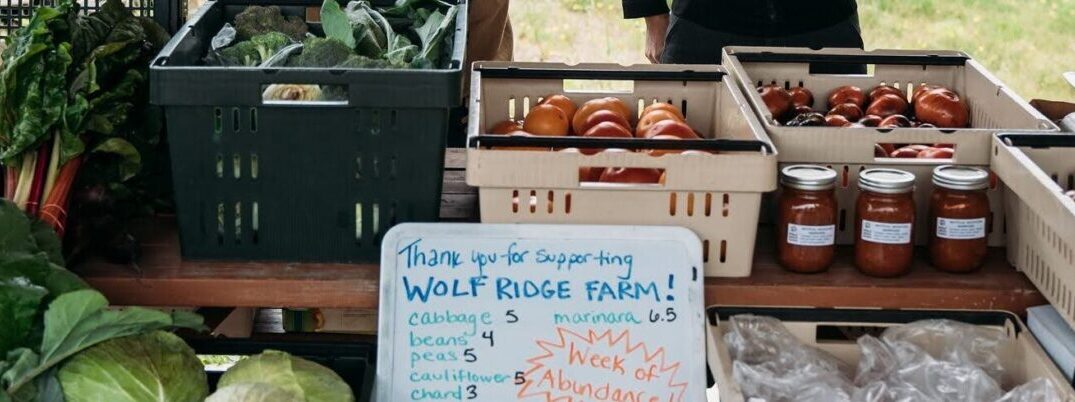 Thank you for supporting
WOLF RIDGE FARM!
cabbage 5
beans 4
peas 5
cauliflower 5
chard 3
marinara 6.5
Week of
Abundance!